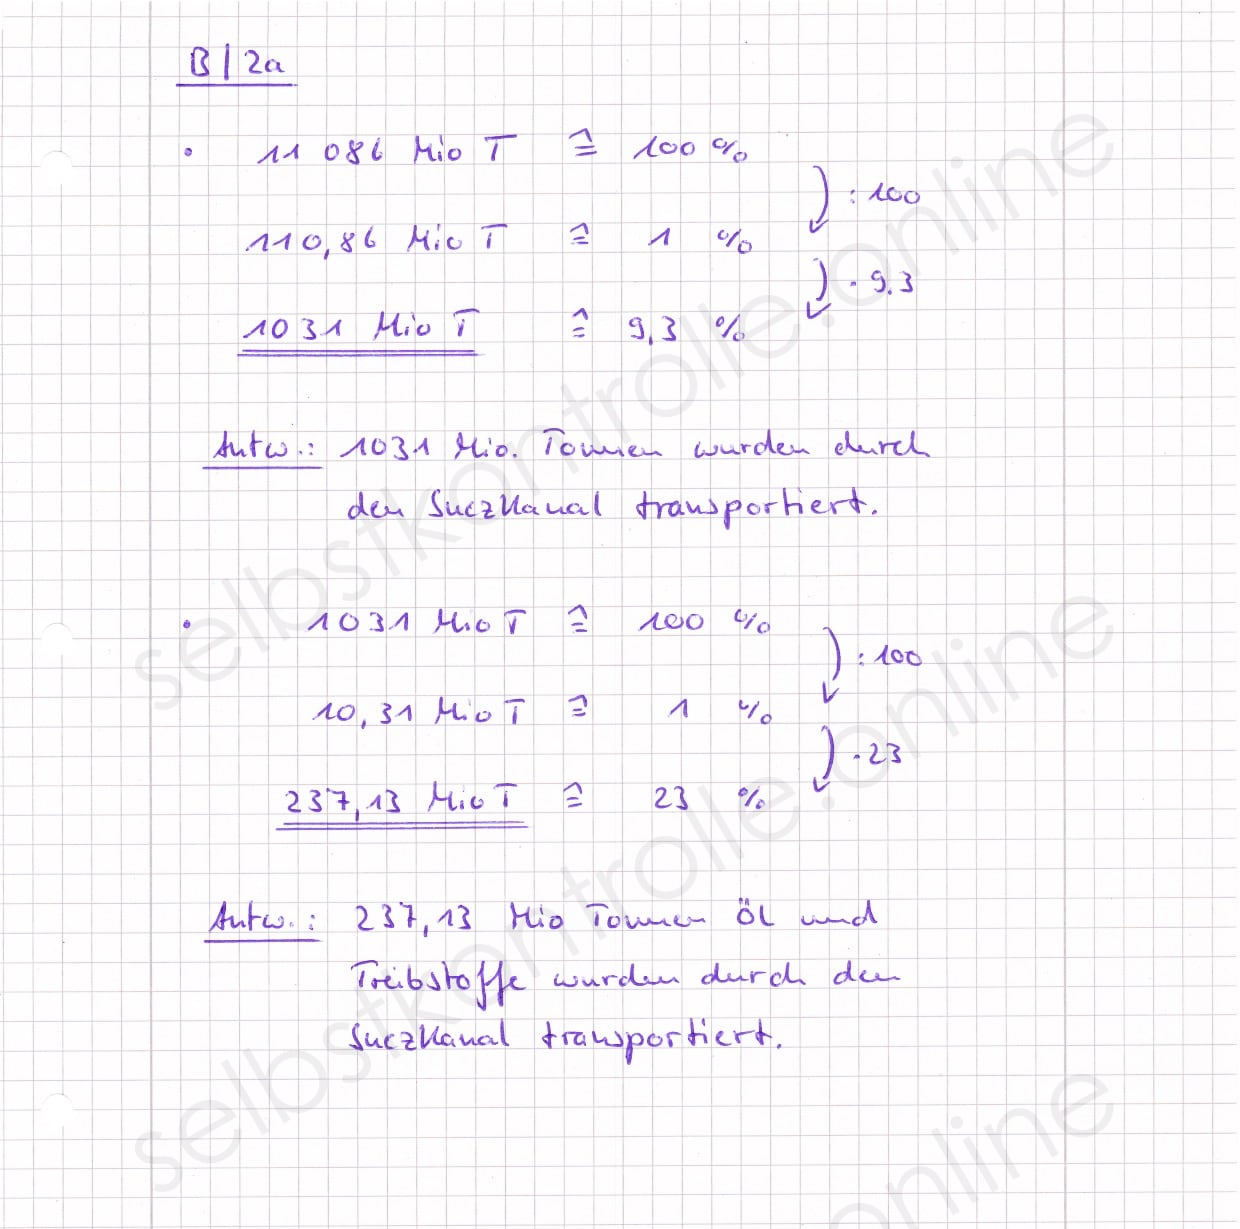 B/2a
• 11 086 Mio T ≙ 100 %
: 100
110,86 Mio T ≙ 1 %
· 9,3
1031 Mio T ≙ 9,3 %
Antw.: 1031 Mio. Tonnen wurden durch
den Suezkanal transportiert.
• 1031 Mio T ≙ 100 %
: 100
10,31 Mio T ≙ 1 %
· 23
237,13 Mio T ≙ 23 %
Antw.: 237,13 Mio Tonnen Öl und
Treibstoffe wurden durch den
Suezkanal transportiert.
selbstkontrolle.online
selbstkontrolle.online
online